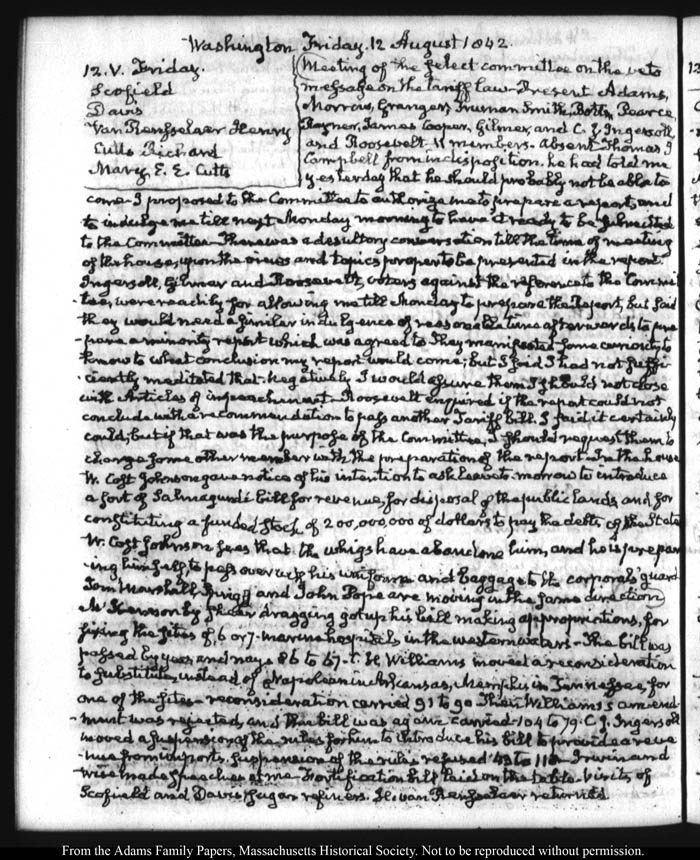 Washington Friday. 12 August 1842.
12. V. Friday.
Scofield
Davis
Van Rensselaer Henry
Cutts Richard
Mary, E. E. Cutts
Meeting of the select committee on the veto
message on the tariff law. Present Adams,
Morrow, Granger, Truman Smith, Botts, Pearce,
Rayner, James Cooper, Gilmer, and C. J. Ingersoll,
and Roosevelt. 11 members. Absent Thomas J
Campbell from indisposition. he had told me
yesterday that he should probably not be able to
come. I proposed to the Committee to authorize me to prepare a report, and
to indulge me till next Monday morning to have it ready to be submitted
to the Committee. There was a desultory conversation till the time of meeting
of the house, upon the views and topics proper to be presented in the report.
Ingersoll, Gilmer and Roosevelt, voters against the reference to the Commit
-tee, were readily for allowing me till Monday to prepare the Report, but said
they would need a similar indulgence of reasonable time afterwards to pre
-pare a minority report which was agreed to. They manifested some curiosity to
know to what conclusion my report would come; but I said I had not suffi
-ciently meditated that. Negatively I would assure them I should not close
with Articles of impeachment. Roosevelt enquired if the report could not
conclude with a recommendation to pass another Tariff bill. I said it certainly
could; but if that was the purpose of the Committee, I should request them to
charge some other member with the preparation of the report. In the house
W. Cost Johnson gave notice of his intention to ask leave to-morrow to introduce
a sort of Salmagundi bill for revenue, for disposal of the public lands and for
constituting a funded stock of 200,000,000 of dollars to pay the debts of the States
W. Cost Johnson sees that the whigs have abandone him, and he is prepar
-ing himself to pass over with his uniform and baggage to the corporal's guard
Tom Marshall, and John Pope are moving in the same direction
by dragging got up his bill making appropriations, for
fixing the sites of, 6 or 7. marine hospitals in the western waters. The bill was
passed by yeas, and nays 86 to 67. Williams moved a reconsideration
to substitute, instead of Napoleon in Arkansas, Memphis in Tennessee, for
one of the sites. reconsideration carried 91 to 90. Then Williams's amend
-ment was rejected, and the bill was again carried. 104 to 79. C. J. Ingersoll
moved a suspension of the rules for him to introduce his bill to provide a reve
-nue from imports. suspension of the rules refused 43 to 110. Irwin and
Wise made speeches at me. Fortification bill laid on the table. Visits, of
Scofield and Davis, sugar refiners. H. van Rensselaer returned
From the Adams Family Papers, Massachusetts Historical Society. Not to be reproduced without permission.